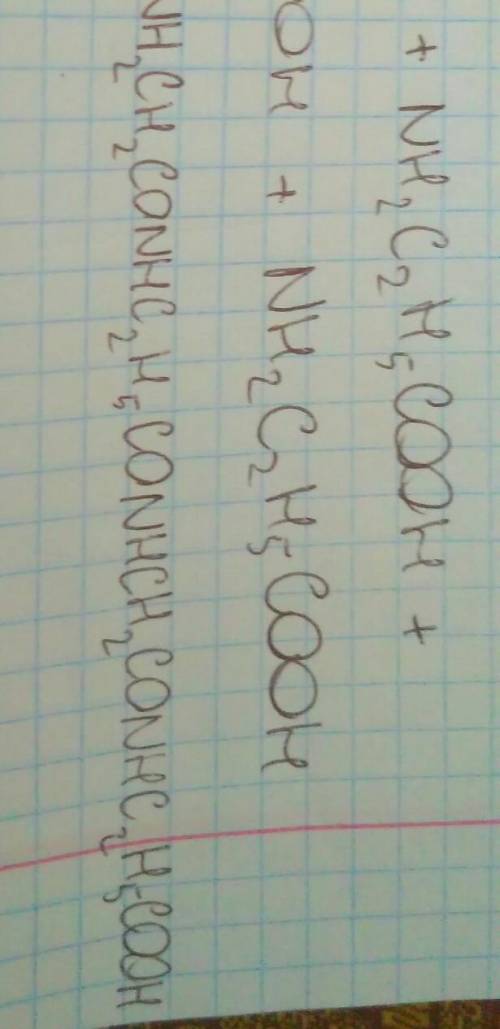 + NH₂C₂H₅COOH +
OH + NH₂C₂H₅COOH
NH₂CH₂CONHC₂H₅CONHCH₂CONHC₂H₅COOH